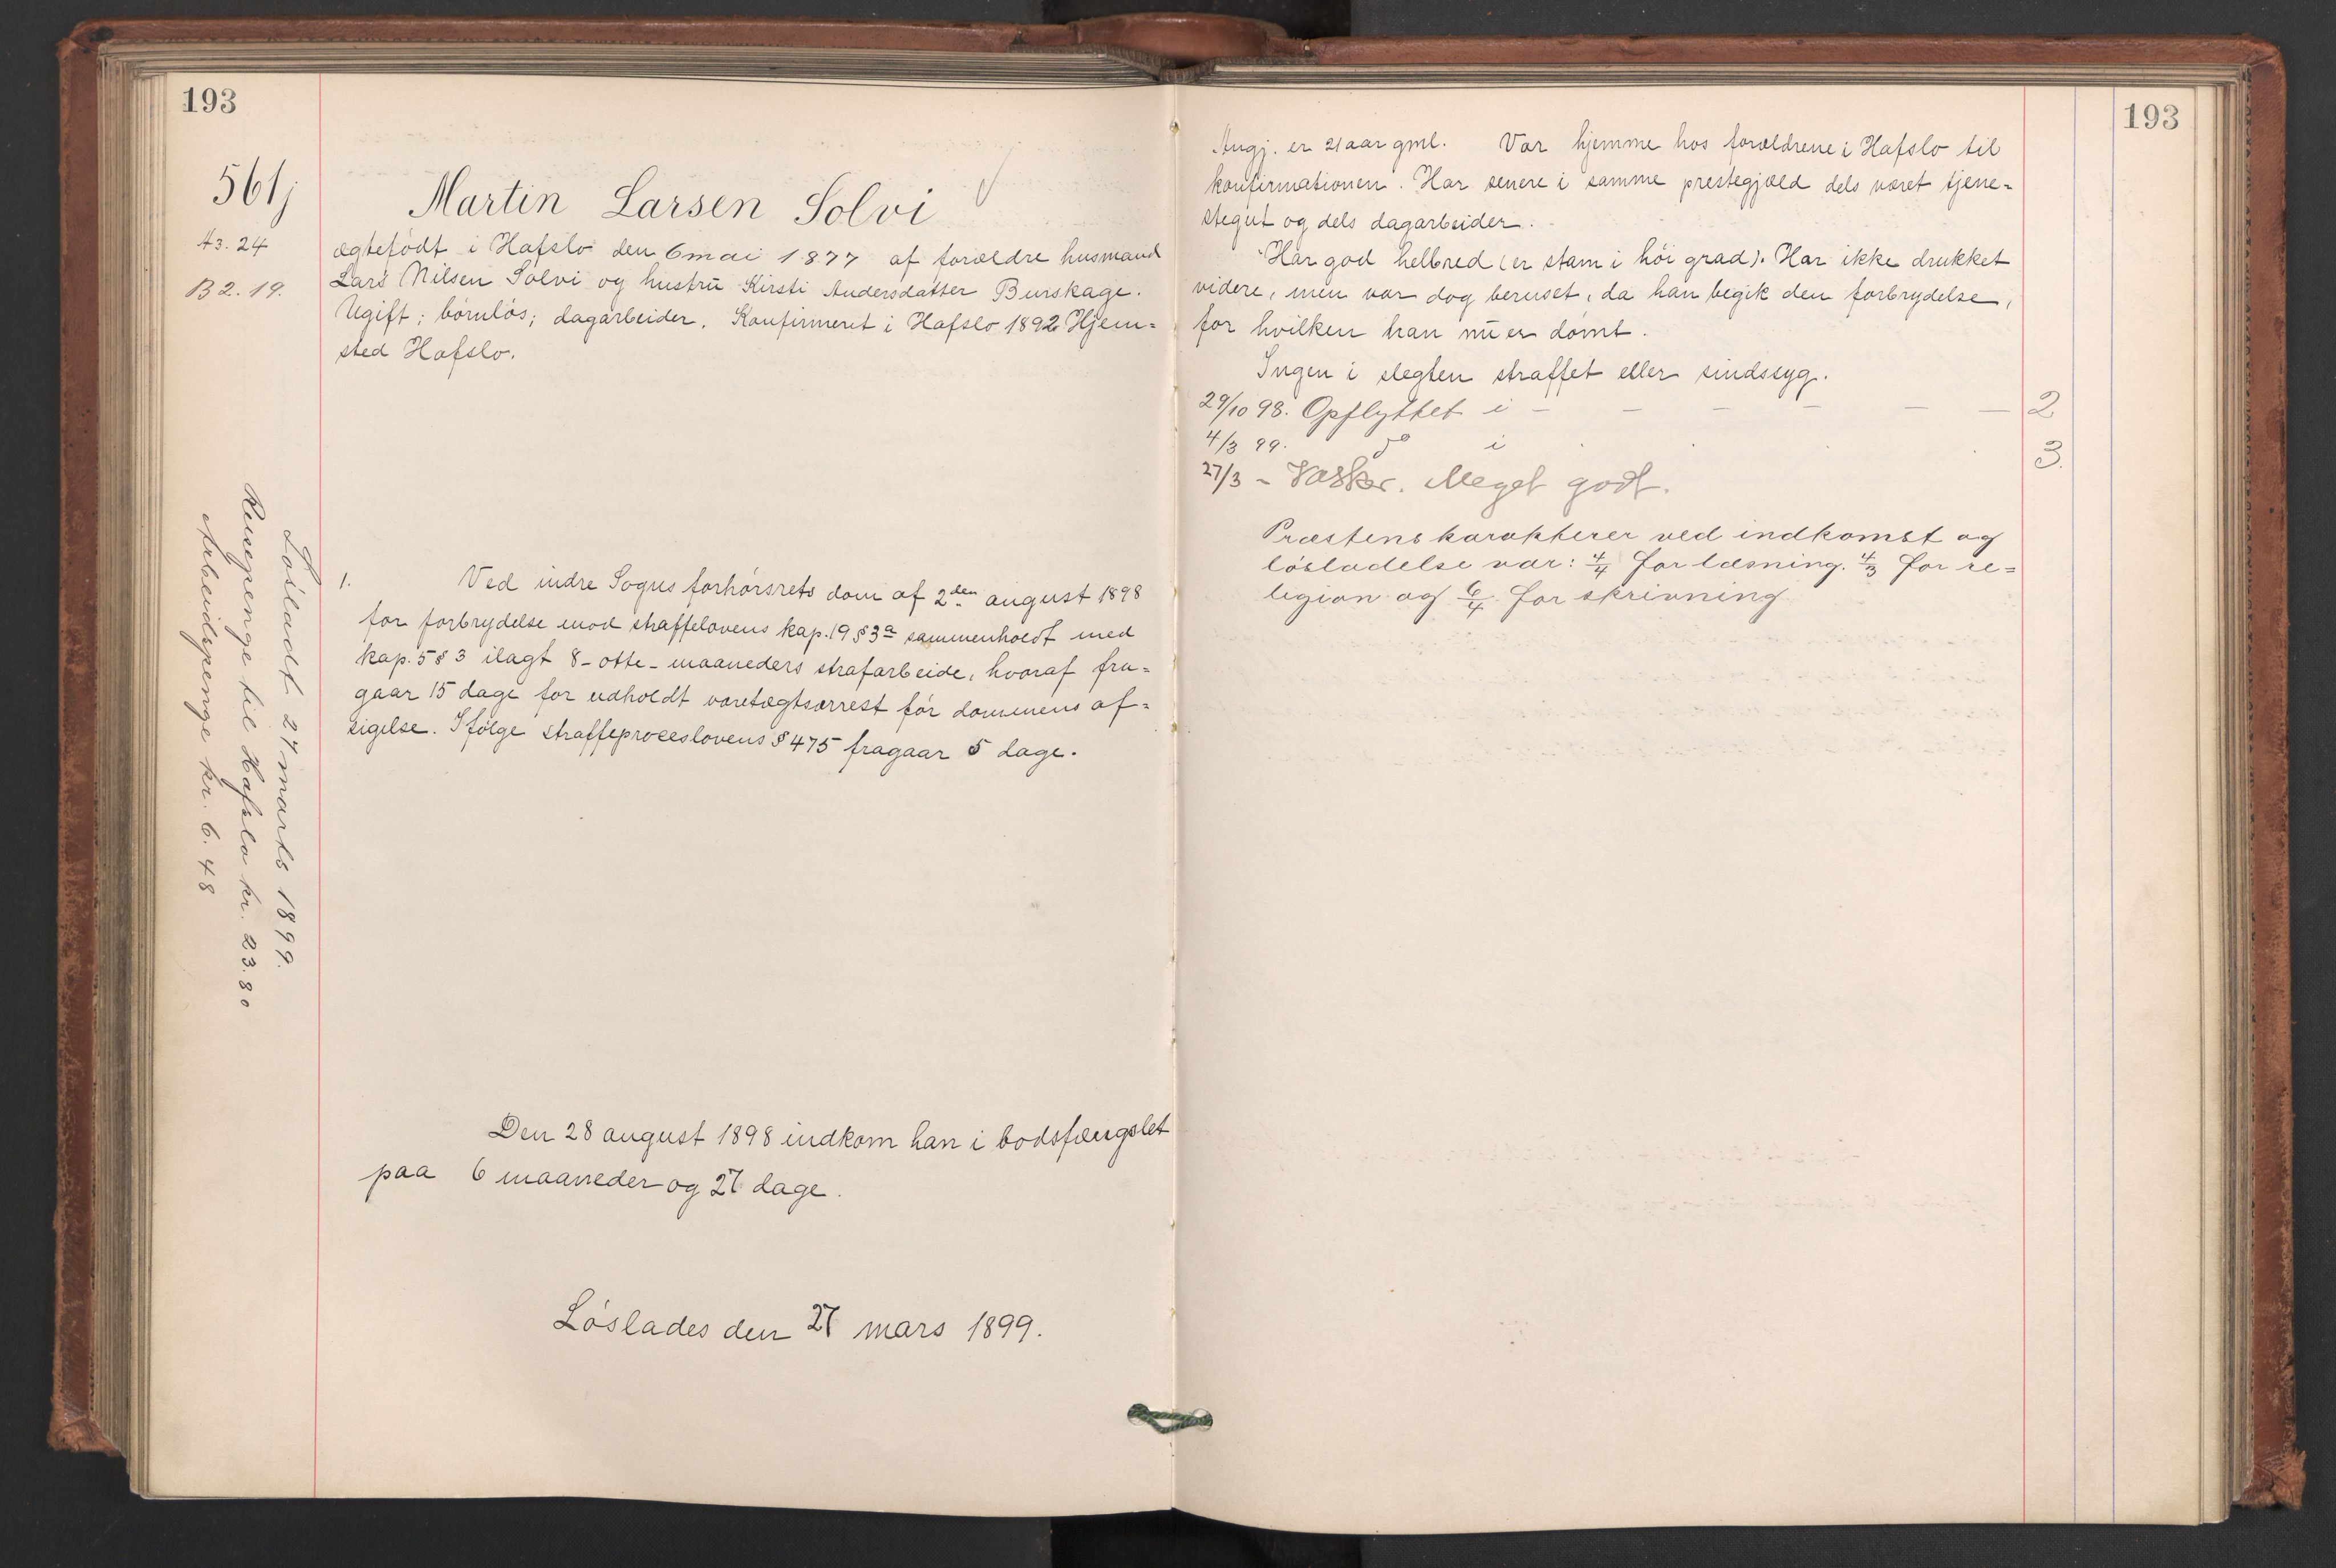 193
561j
A3. 24
B2. 19.
Martin Larsen Solvi
ægtefödt i Hafslo den 6 mai 1877 af forældre husmand
Lars Nilsen Solvi og hustru Kirsti Andersdatter Burskage.
Ugift; börnlös; dagarbeider. Konfirmeret i Hafslo 1892 Hjem=
sted Hafslo.
1. Ved indre Sogns forhörsrets dom af 2den august 1898
for forbrydelse mod straffelovens kap. 19 § 3a sammenholdt med
kap. 5 § 3 ilagt 8 - otte - maaneders strafarbeide, hvoraf fra=
gaar 15 dage for udholdt varetægtsarrest för dommens af=
sigelse. Ifölge straffeproceslovens § 475 fragaar 5 dage.
Lösladt 27 marts 1899.
Reisepenge til Hafslo kr. 23.80
Arbeidspenge kr. 6.48
Den 28 august 1898 indkom han i bodsfængslet
paa 6 maaneder og 27 dage.
Löslades den 27 mars 1899.
193
Angj. er 21 aar gml. Var hjemme hos forældrene i Hafslo til
konfirmationen. Har senere i samme prestegjæld dels været tjene=
stegut og dels dagarbeider.
Har god helbred (er stam i höi grad). Har ikke drukket
videre, men var dog beruset, da han begik den forbrydelse,
for hvilken han nu er dömt.
Ingen i slegten straffet eller sindssyg.
29/10 98. Opflyttet i - - - - - - 2
4/3 99. do i 3.
27/3 - Vasker. Meget godt.
Præstens karakterer ved indkomst og
lösladelse var: 4/4 for læsning. 4/3 for re=
ligion og 6/4 for skrivning